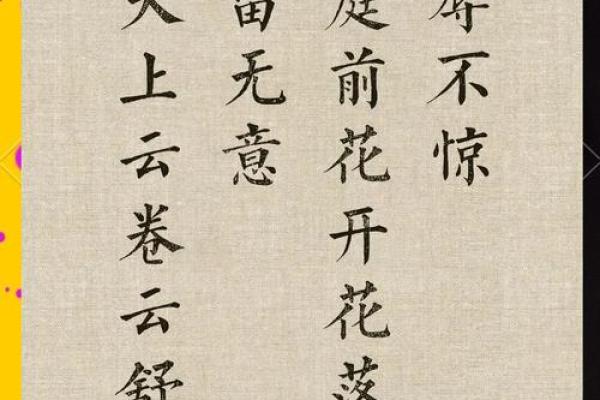 辱不惊
庭前花开花落
留无意
天上云卷云舒